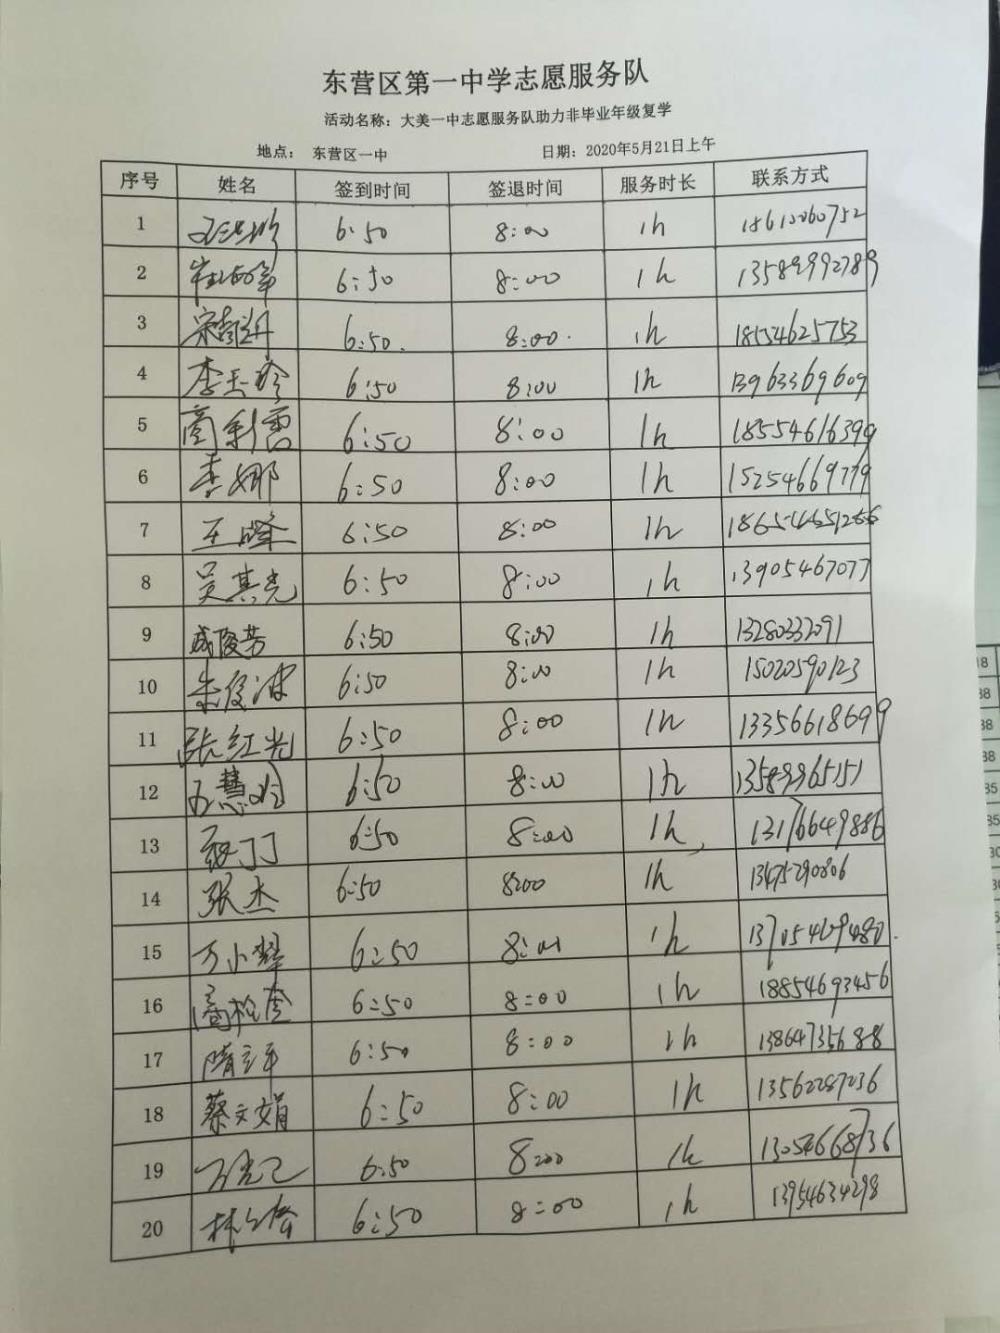 东营区第一中学志愿服务队
活动名称：大美一中志愿服务队助力非毕业年级复学
地点： 东营区一中 日期：2020年5月21日上午
序号 姓名 签到时间 签退时间 服务时长 联系方式
1 6:50 8:00 1h
2 6:50 8:00 1h 13589992789
3 6:50. 8:00. 1h 18554625753
4 李玉珍 6:50 8:00 1h 13963369609
5 商利雪 6:50 8:00 1h 18554616399
6 李娜 6:50 8:00 1h 15254669779
7 王峰 6:50 8:00 1h
8 吴其光 6:50 8:00 1h 13905467077
9 成俊芳 6:50 8:00 1h 13280332091
10 朱俊波 6:50 8:00 1h 15020590123
11 张红光 6:50 8:00 1h 13356618699
12 慧玲 6:50 8:00 1h 13589965151
13 丁丁 6:50 8:00 1h 13176649886
14 张杰 6:50 8:00 1h 13475290806
15 万小 6:50 8:00 1h 13705469480
16 6:50 8:00 1h 18854693456
17 隋立平 6:50 8:00 1h 13864735688
18 蔡文娟 6:50 8:00 1h 13562287236
19 6:50 8:00 1h 13054668736
20 6:50 8:00 1h 13954634298